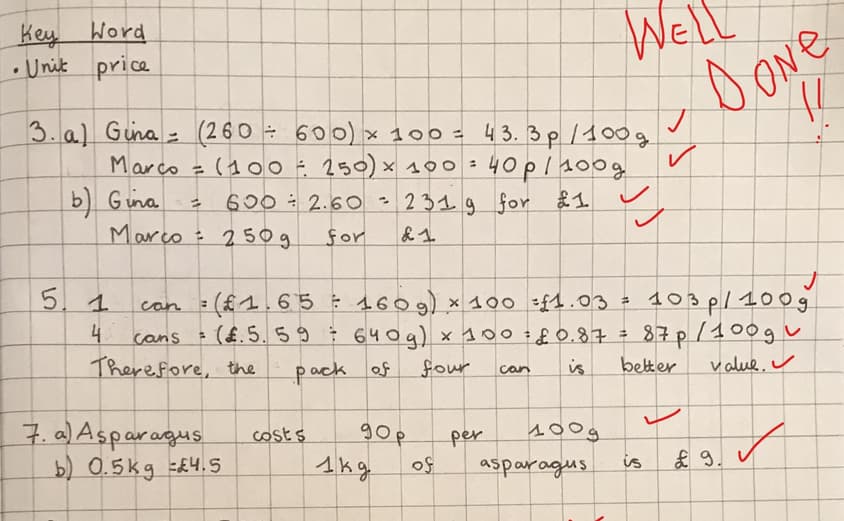 Key Word
WELL
• Unit price
DONE!!
3. a) Gina = (260 ÷ 600) × 100 = 43.3p/100g ✓
Marco = (100 ÷ 250) × 100 = 40p/100g ✓
b) Gina = 600 ÷ 2.60 = 231g for £1 ✓
Marco = 250g for £1 ✓
5. 1 can = (£1.65 ÷ 160g) × 100 = £1.03 = 103p/100g ✓
4 cans = (£.5.59 ÷ 640g) × 100 = £0.87 = 87p/100g ✓
Therefore, the pack of four can is better value. ✓
7. a) Asparagus costs 90p per 100g ✓
b) 0.5kg = £4.5 1kg of asparagus is £9. ✓